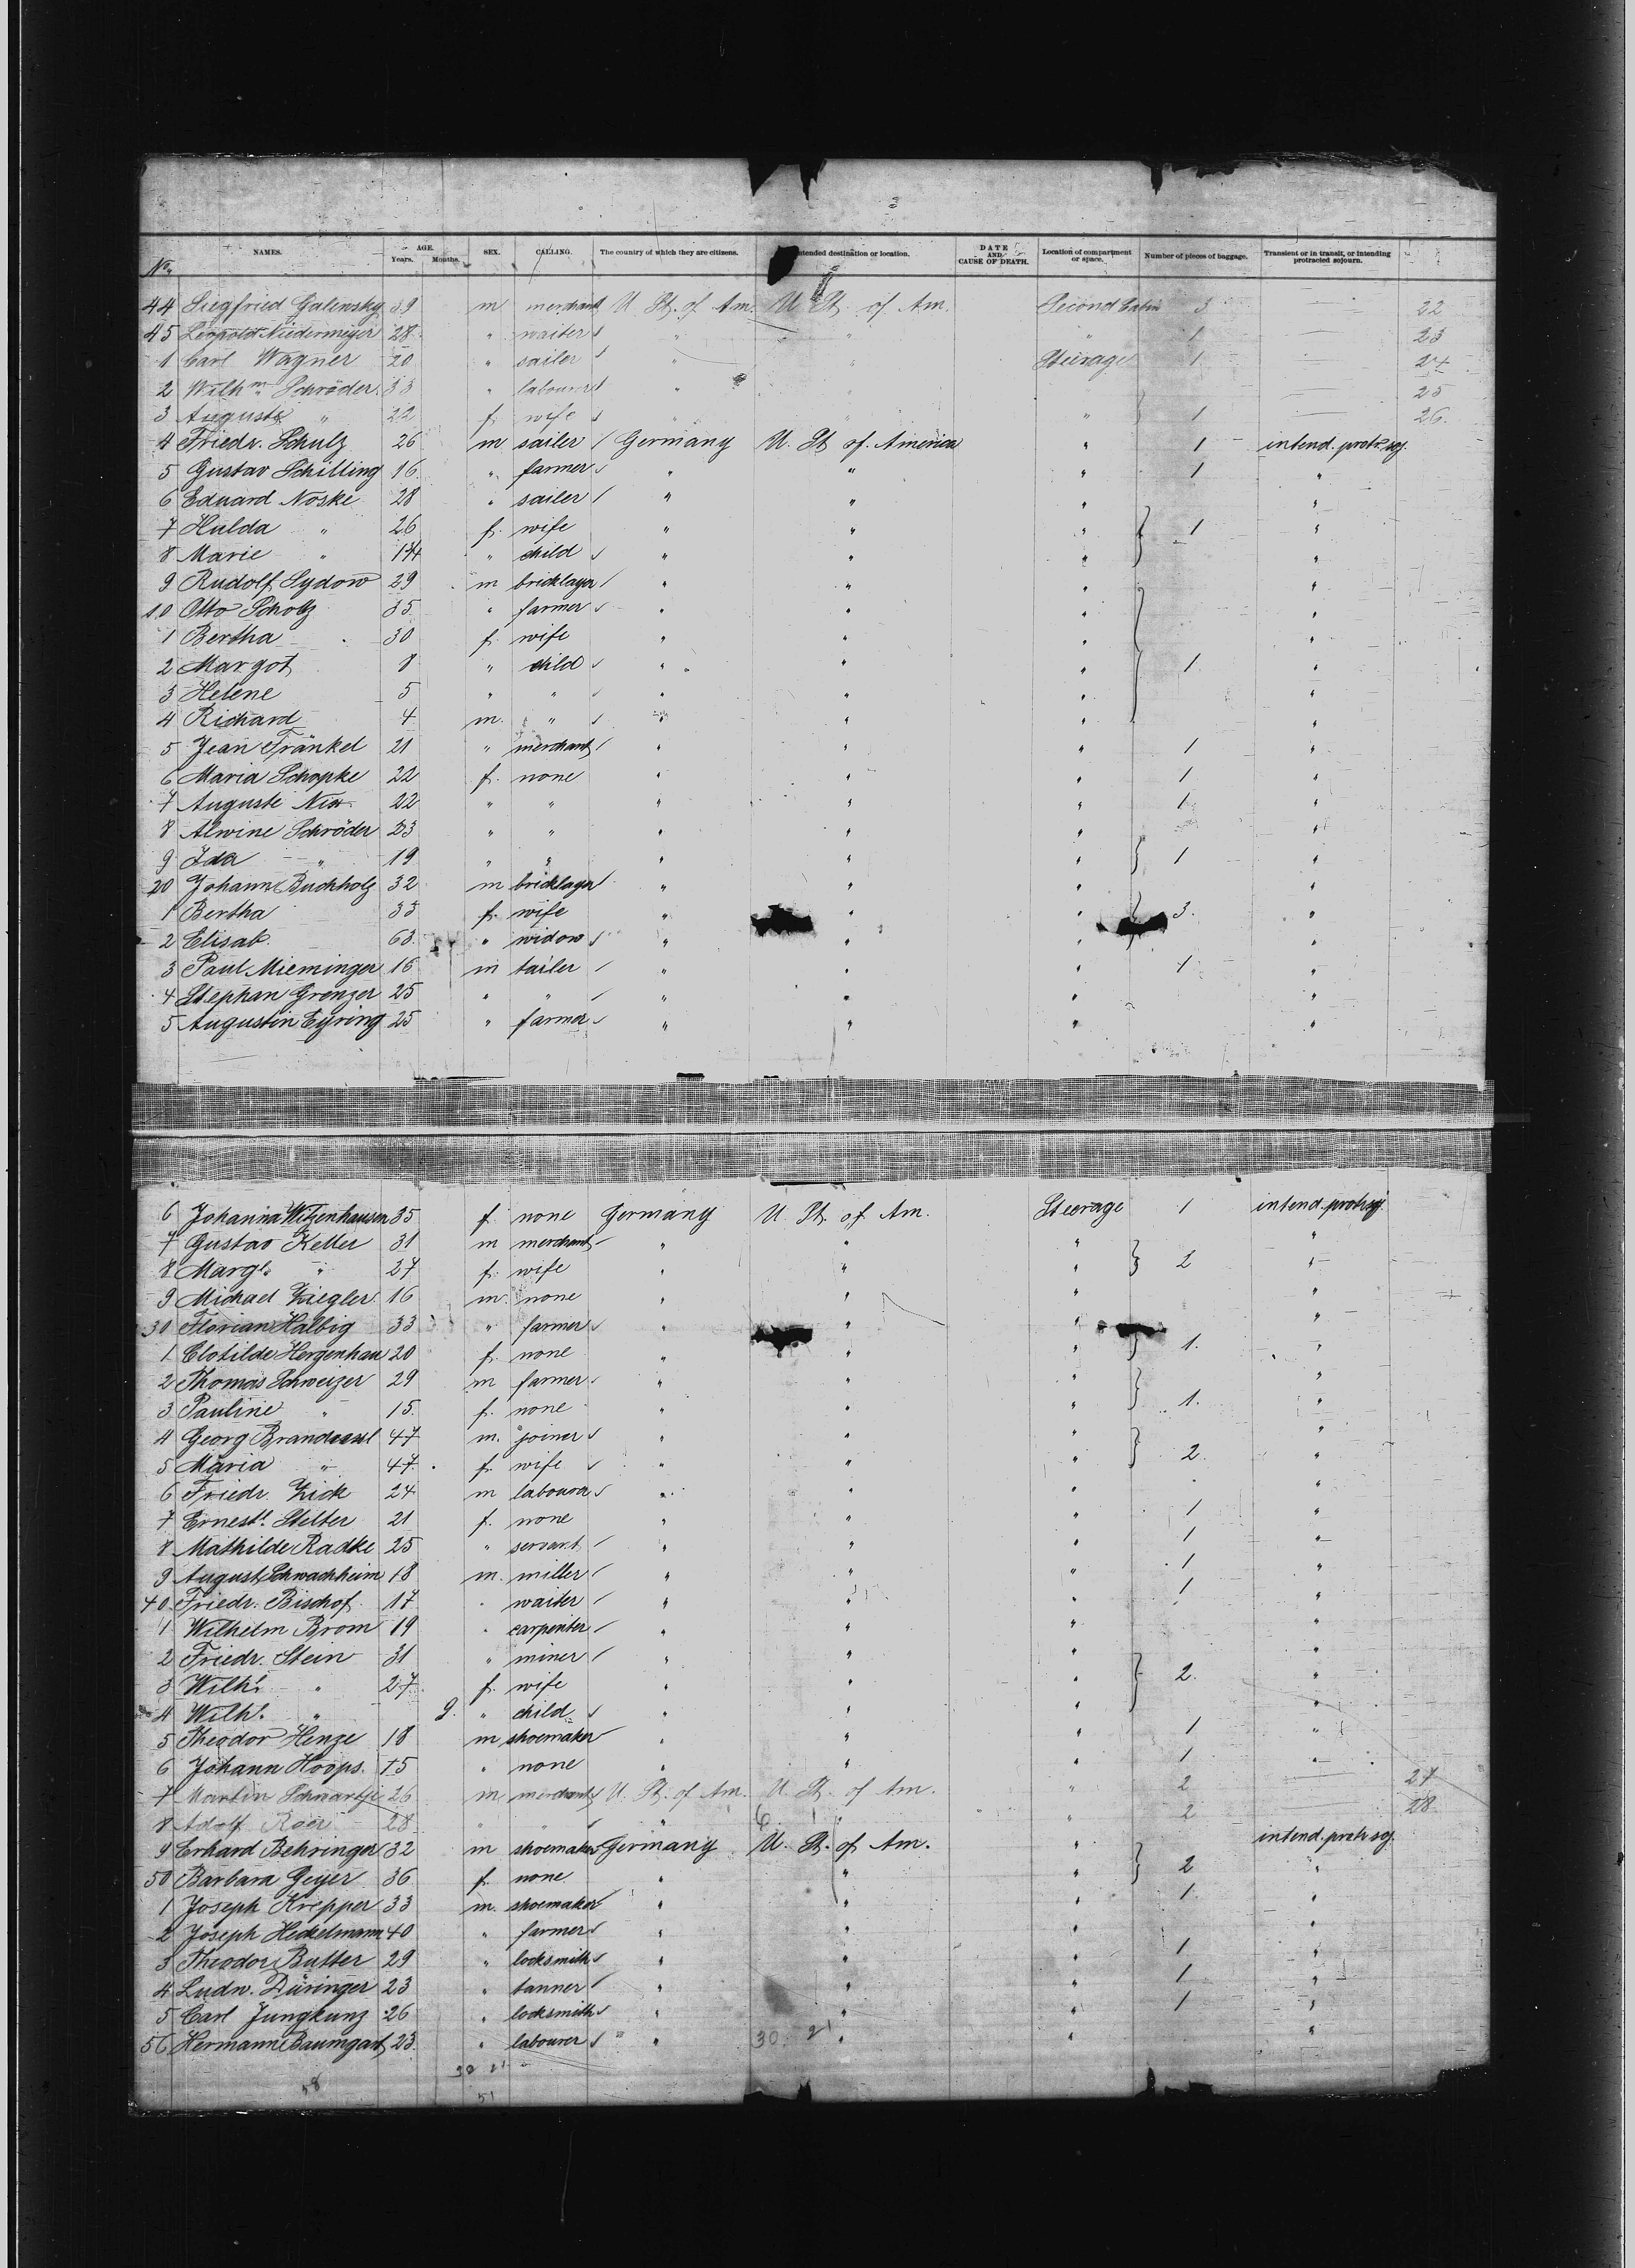 No. NAMES. AGE. Years. Months. SEX. CALLING. The country of which they are citizens. Intended destination or location. DATE AND CAUSE OF DEATH. Location of compartment or space. Number of pieces of baggage. Transient or in transit, or intending protracted sojourn.
44 Siegfried Galensky 39 m merchant U. St. of Am. U St. of Am. Second Cabin 3 — 22
45 Leopold Niedermeyer 28 " waiter " " " 1 — 23
1 Carl Wagner 20 " sailer " " Steerage 1 — 24
2 Wilhm Schröder 33 " labourer " " — 25
3 Auguste " 22 f. wife " " " 1 — 26.
4 Friedr. Schulz 26 m sailer Germany U. St. of America " 1 intend. protr. soj.
5 Gustav Schilling 16. " farmer " " " 1 "
6 Eduard Noske 28 " sailer " " " "
7 Hulda " 26 f. wife " " " 1 "
8 Marie " " child " " " "
9 Rudolf Sydow 29 m bricklayer " " " "
10 Otto Scholz 35 " farmer " " " "
1 Bertha 30 f. wife " " " "
2 Margot 8 " child " " " 1 "
3 Helene 5 " " " " " "
4 Richard 4 m. " " " " "
5 Jean Fränkel 21 " merchant " " " 1 "
6 Maria Schopke 22 f. none " " " 1 "
7 Auguste Nix 22 " " " " " 1 "
8 Alwine Schröder 23 " " " " " "
9 Ida " 19 " " " " " 1 "
20 Johann Buchholz 32 m bricklayer " " " "
1 Bertha 33 f. wife " " " 3. "
2 Elisab. 63. " widow " " " "
3 Paul Mieminger 16 m tailer " " " 1 "
4 Stephan Grenzer 25 " " " " " "
5 Augustin Eyring 25 " farmer " " " "
6 Johanna Witzenhausen 35 f. none Germany U. St. of Am. Steerage 1 intend. protr. soj.
7 Gustav Keller 31 m merchant " " " "
8 Margt. " 27 f. wife " " " 2 "
9 Michael Ziegler 16 m. none " " " "
30 Florian Halbig 33 " farmer " " " "
1 Clotilde Hergenhan 20 f. none " " " 1. "
2 Thomas Schweizer 29 m farmer " " " "
3 Pauline " 15. f. none " " " 1. "
4 Georg 47 m. joiner " " " "
5 Maria " 47. f. wife " " " 2. "
6 Friedr. Zick 24 m labourer " " " "
7 Ernest. Stelter 21 f. none " " " 1 "
8 Mathilde Radke 25 " servant " " " 1 "
9 August Schwachheim 18 m. miller " " " 1 "
40 Friedr. Bischof 17 " waiter " " " 1 "
1 Wilhelm Brom 19 " carpenter " " " "
2 Friedr. Stein 31 " miner " " " "
3 Wilh. " 27. f. wife " " " 2. "
4 Wilh. " 9. " child " " " "
5 Theodor Henze 18 m shoemaker " " " 1 "
6 Johann Hoops. 15 " none " " " 1 "
7 Martin 26 m merchant U. St. of Am. U. St. of Am. " 2 — 27
8 Adolf 28 " " " " " 2 — 28
9 Erhard Behringer 32 m shoemaker Germany U. St. of Am. " intend. protr. soj.
50 Barbara Geyer 36 f. none " " " 2 "
1 Joseph Krepper 33 m. shoemaker " " " 1 "
2 Joseph Heckelmann 40 " farmer " " " "
3 Theodor Butter 29 " locksmith " " " 1 "
4 Ludw. Düringer 23 " tanner " " " 1 "
5 Carl Jungkunz 26 " locksmith " " " 1 "
56 Hermann Baumgart 23. " labourer " 30 21 " " "
30 21
58 51